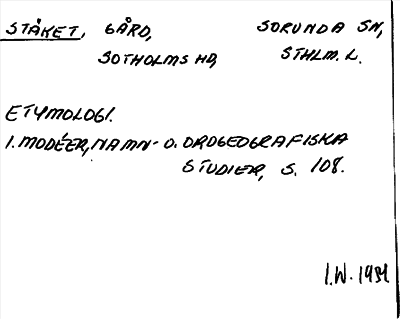 STÅKET, GÅRD, SORUNDA SN,
SOTHOLMS HD, STHLM. L.
ETYMOLOGI.
I. MODÉER, NAMN- O. ORDGEOGRAFISKA
STUDIER, S. 108.
I.W. 1939